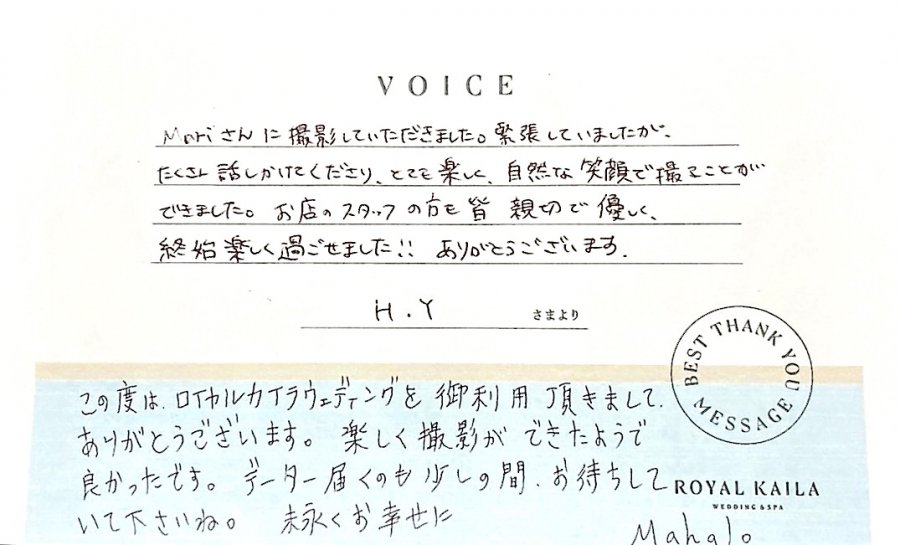 VOICE
Mariさんに撮影していただきました。緊張していましたが、
たくさん話しかけてくださり、とても楽しく、自然な笑顔で撮ることが
できました。お店のスタッフの方も皆親切で優しく、
終始楽しく過ごせました!! ありがとうございます.
H.Y さまより
BEST THANK YOU MESSAGE
この度は、ロイヤルカイラウェディングを御利用頂きまして、
ありがとうございます。楽しく撮影ができたようで
良かったです。データー届くのも少しの間、お待ちして
いて下さいね。 末永くお幸せに
ROYAL KAILA
WEDDING & SPA
Mahalo